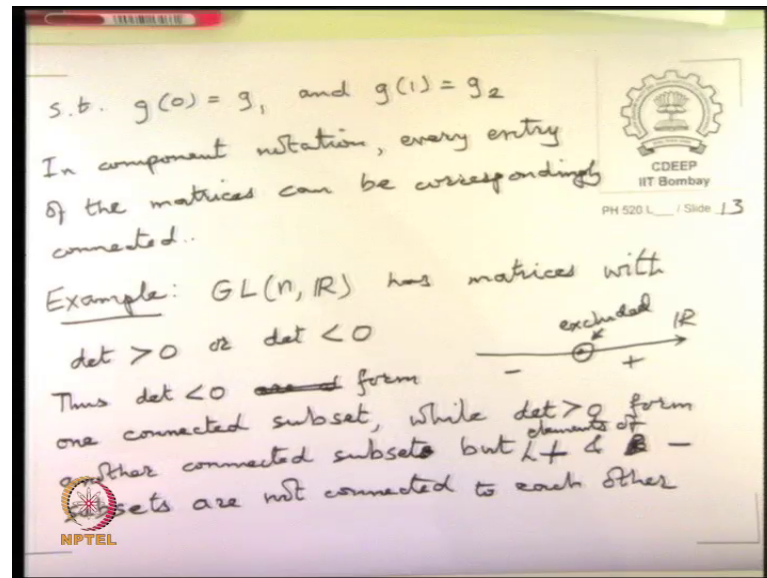 s.t. g(0) = g₁ and g(1) = g₂
In component notation, every entry
of the matrices can be correspondingly
connected..
CDEEP
IIT Bombay
PH 520 L___ / Slide 13
Example: GL(n, IR) has matrices with
det > 0 or det < 0
excluded
IR
- +
Thus det < 0 form
one connected subset, while det > 0 form
another connected subset but elements of + & -
subsets are not connected to each other
NPTEL